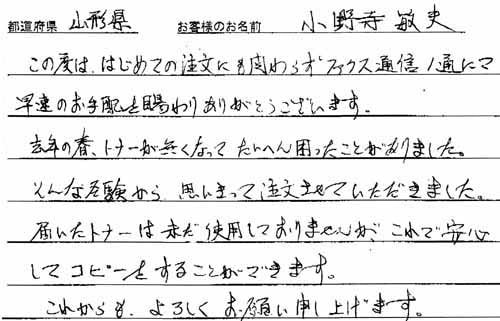 都道府県 山形県 お客様のお名前 小野寺 敏史
この度は、はじめての注文にも関わらずファックス通信1通にて
早速のお手配を賜わりありがとうございます。
去年の春、トナーが無くなって たいへん困ったことがありました。
そんな経験から 思いきって注文させていただきました。
届いたトナーは未だ使用しておりませんが、これで安心
してコピーをすることができます。
これからも、よろしくお願い申し上げます。